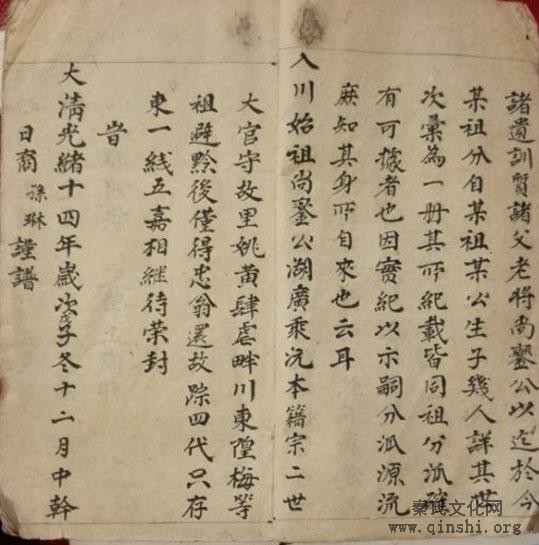 諸遺訓質諸父老將尚鑾公以迄於今
某祖分自某祖某公生子幾人詳其世
次彙為一册其所紀載皆同祖分派確
有可據者也因實紀以示嗣分派源流
庶知其身所自來也云耳
入川始祖尚鑾公湖廣乘沅本籍宗二世
大官守故里姚黄肆虐畔川東隍梅等
祖避黔後僅得忠翁還故踪四代只存
東一线五嘉相継待荣封
旹
大清光緒十四年歲次戊子冬十二月中幹
日裔孫琳謹譜
秦氏文化网
www.qinshi.org